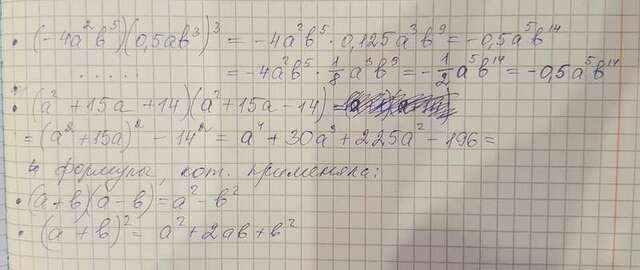 • (-4a²b⁵)(0,5ab³)³ = -4a²b⁵ · 0,125a³b⁹ = -0,5a⁵b¹⁴
..... = -4a²b⁵ · 1/8 a³b⁹ = -1/2 a⁵b¹⁴ = -0,5a⁵b¹⁴
• (a² + 15a + 14)(a² + 15a - 14) =
= (a² + 15a)² - 14² = a⁴ + 30a³ + 225a² - 196 =
↳ формулы, кот. применяла:
• (a + b)(a - b) = a² - b²
• (a + b)² = a² + 2ab + b²